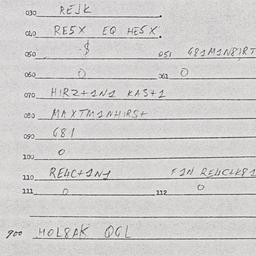 030 REJK
040 RE5X EQ HE5X.
050 $ 051 G81M1N8IRT
060 0 061 0
070 HIRZ+1N1 KAS+1
080 MAXTM1NHIRS+
090 G81
100 0
110 RE4C+1N1
111 0 112 0
900 HOL8AK OGL